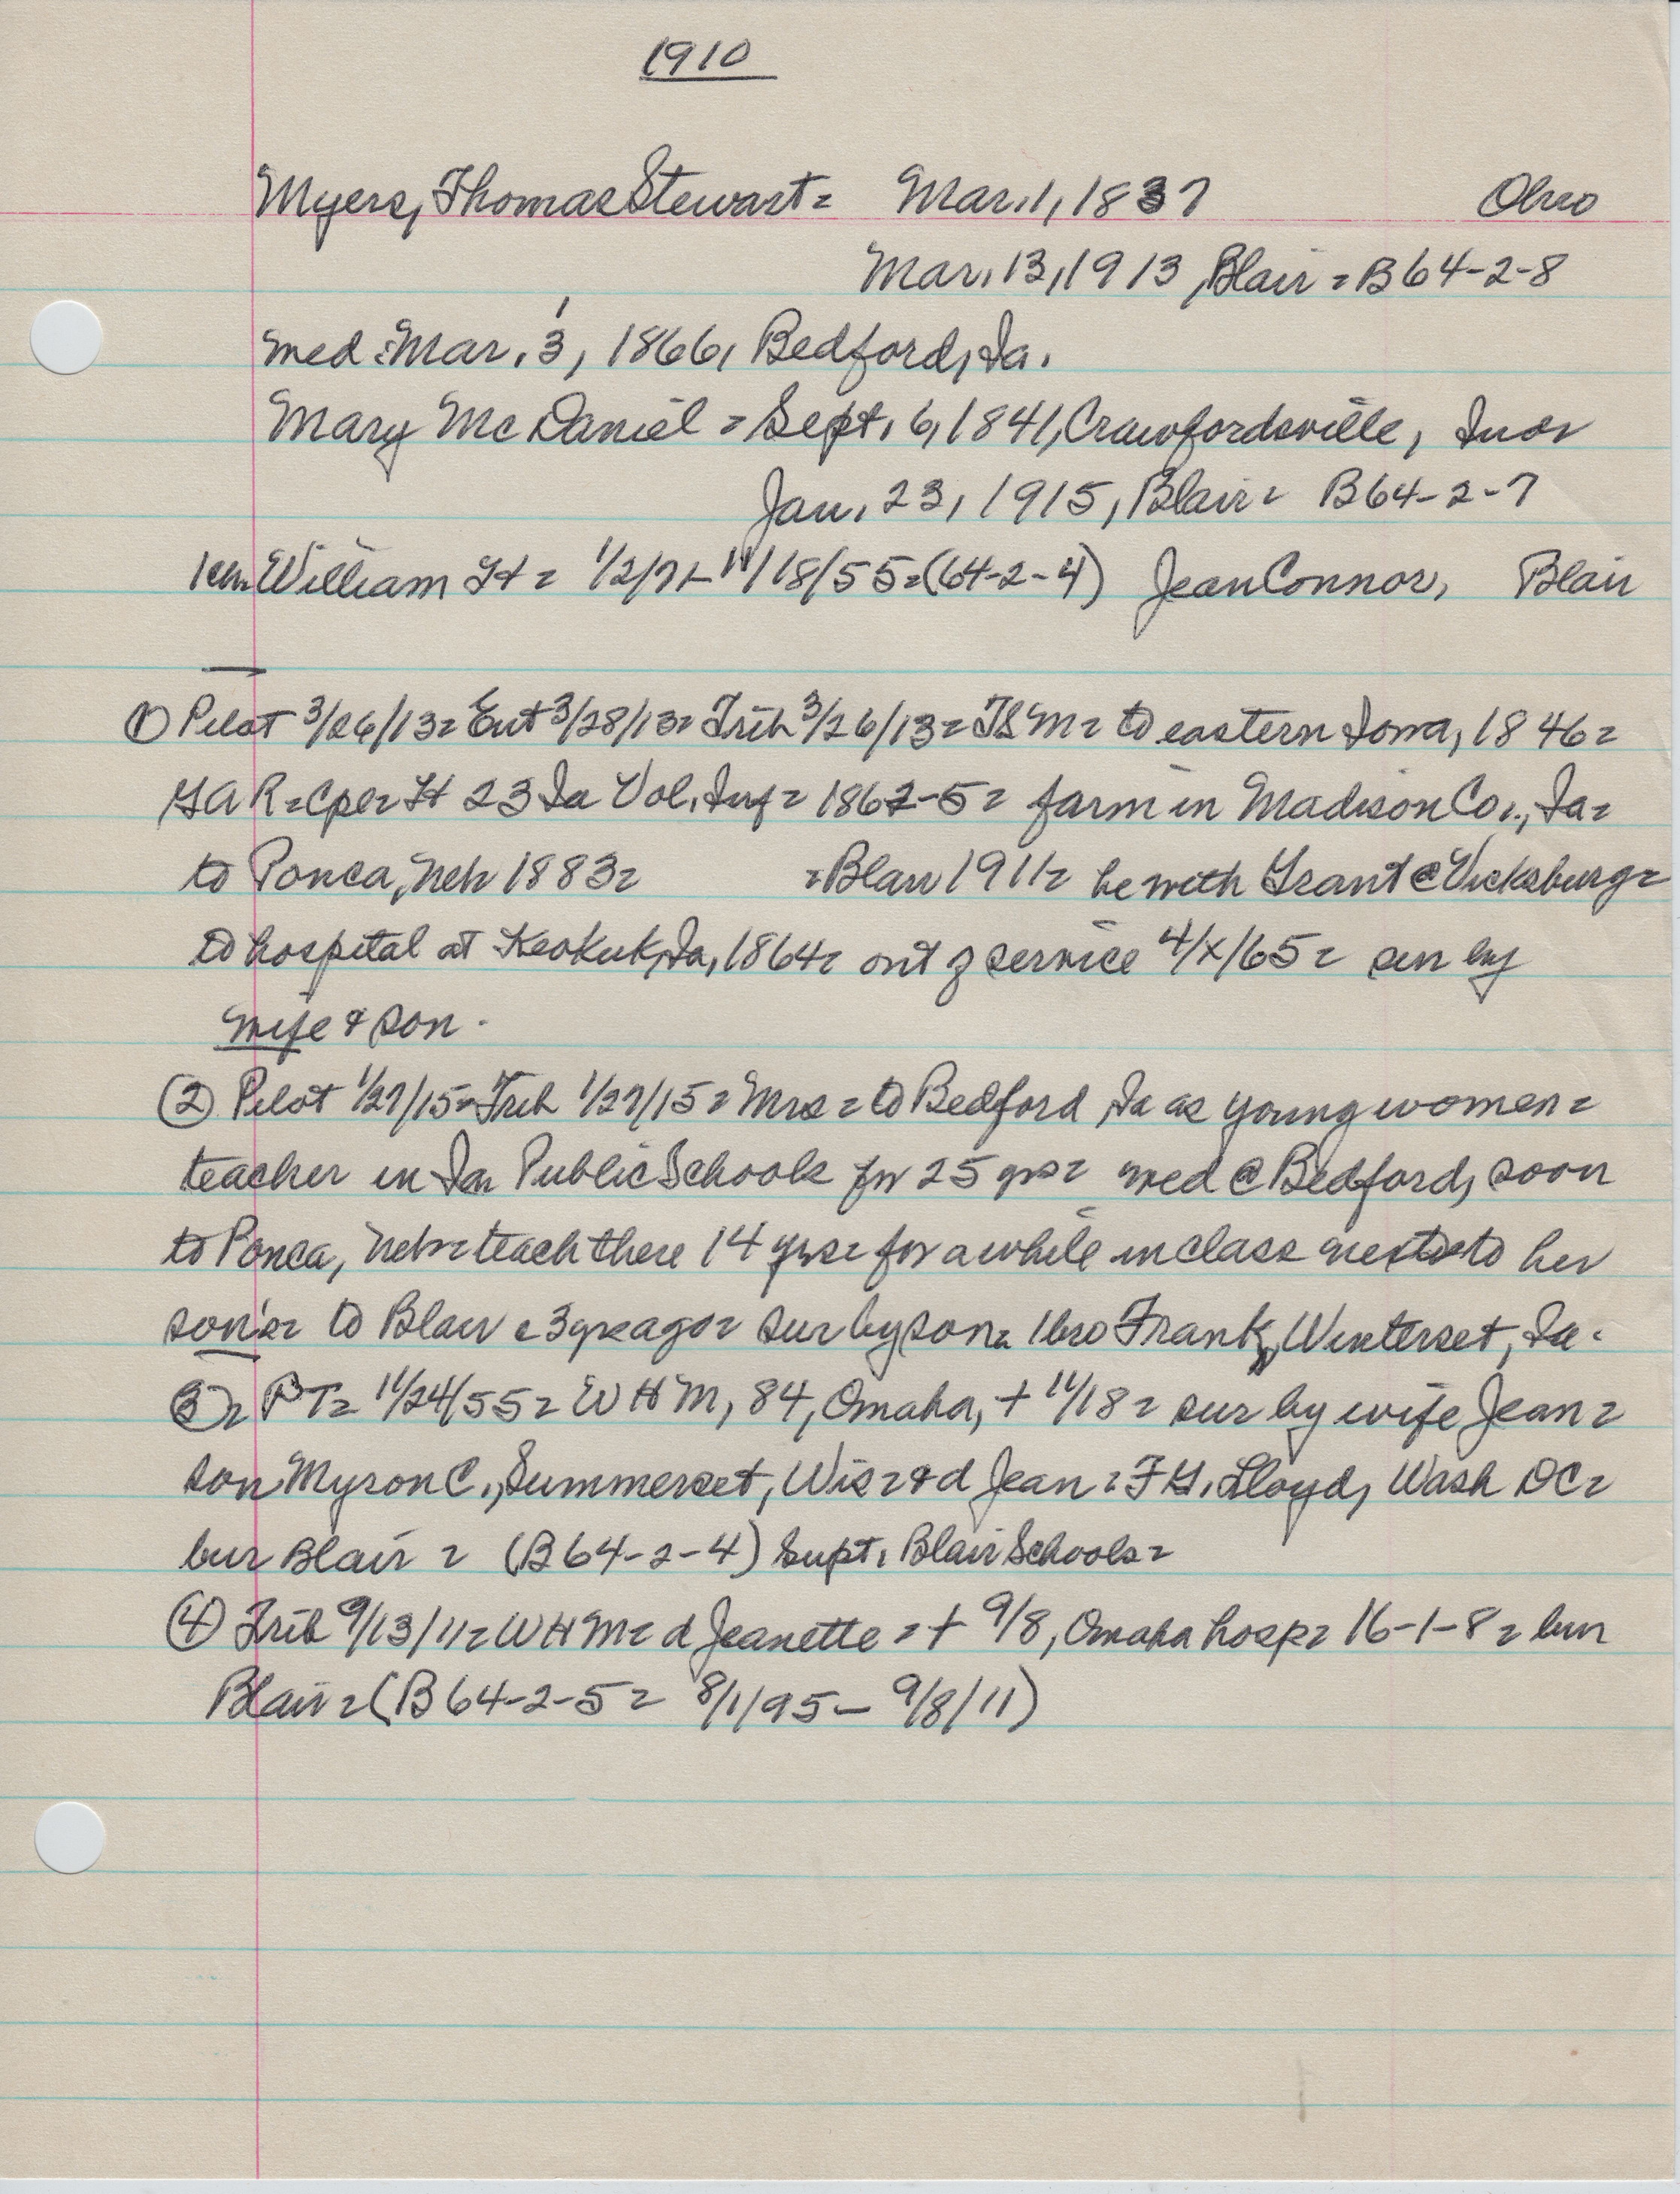 1910
Myers, Thomas Stewart = Mar. 1, 1837 Ohio
Mar. 13, 1913, Blair = B64-2-8
med = Mar. 3, 1866, Bedford, Ia.
Mary McDaniel = Sept. 6, 1841, Crawfordsville, Ind=
Jan. 23, 1915, Blair = B64-2-7
William H = 1/2/71 - 11/18/55 = (64-2-4) Jean Connor, Blair
① Pilot 3/26/13 = Ent 3/28/13 = Trib 3/26/13 = TSM = to eastern Iowa, 1846 =
GAR = Cpl = H 23 Ia Vol. Inf = 1862-5 = farm in Madison Co., Ia =
to Ponca, Neb 1883 = = Blair 1911 = he with Grant @ Vicksburg =
to hospital at Keokuk, Ia, 1864 = out of service 4/x/65 = sur by
wife & son.
(2) Pilot 1/27/15 = Trib 1/27/15 = Mrs = to Bedford, Ia as young women =
teacher in Ia Public Schools for 25 yrs = med @ Bedford, soon
to Ponca, Neb = teach there 14 yrs = for a while in class next to her
son's = to Blair c 3 yrs ago = sur by son = 1 bro Frank, Winterset, Ia.
③ = PT = 11/24/55 = WHM, 84, Omaha, + 11/18 = sur by wife Jean =
son Myron C., Summerset, Wis = & d Jean = F G. Lloyd, Wash DC =
bur Blair = (B64-2-4) Supt. Blair Schools =
④ Trib 9/13/11 = WHM = d Jeanette = + 9/8, Omaha hosp = 16-1-8 = bur
Blair = (B64-2-5 = 8/1/95 - 9/8/11)